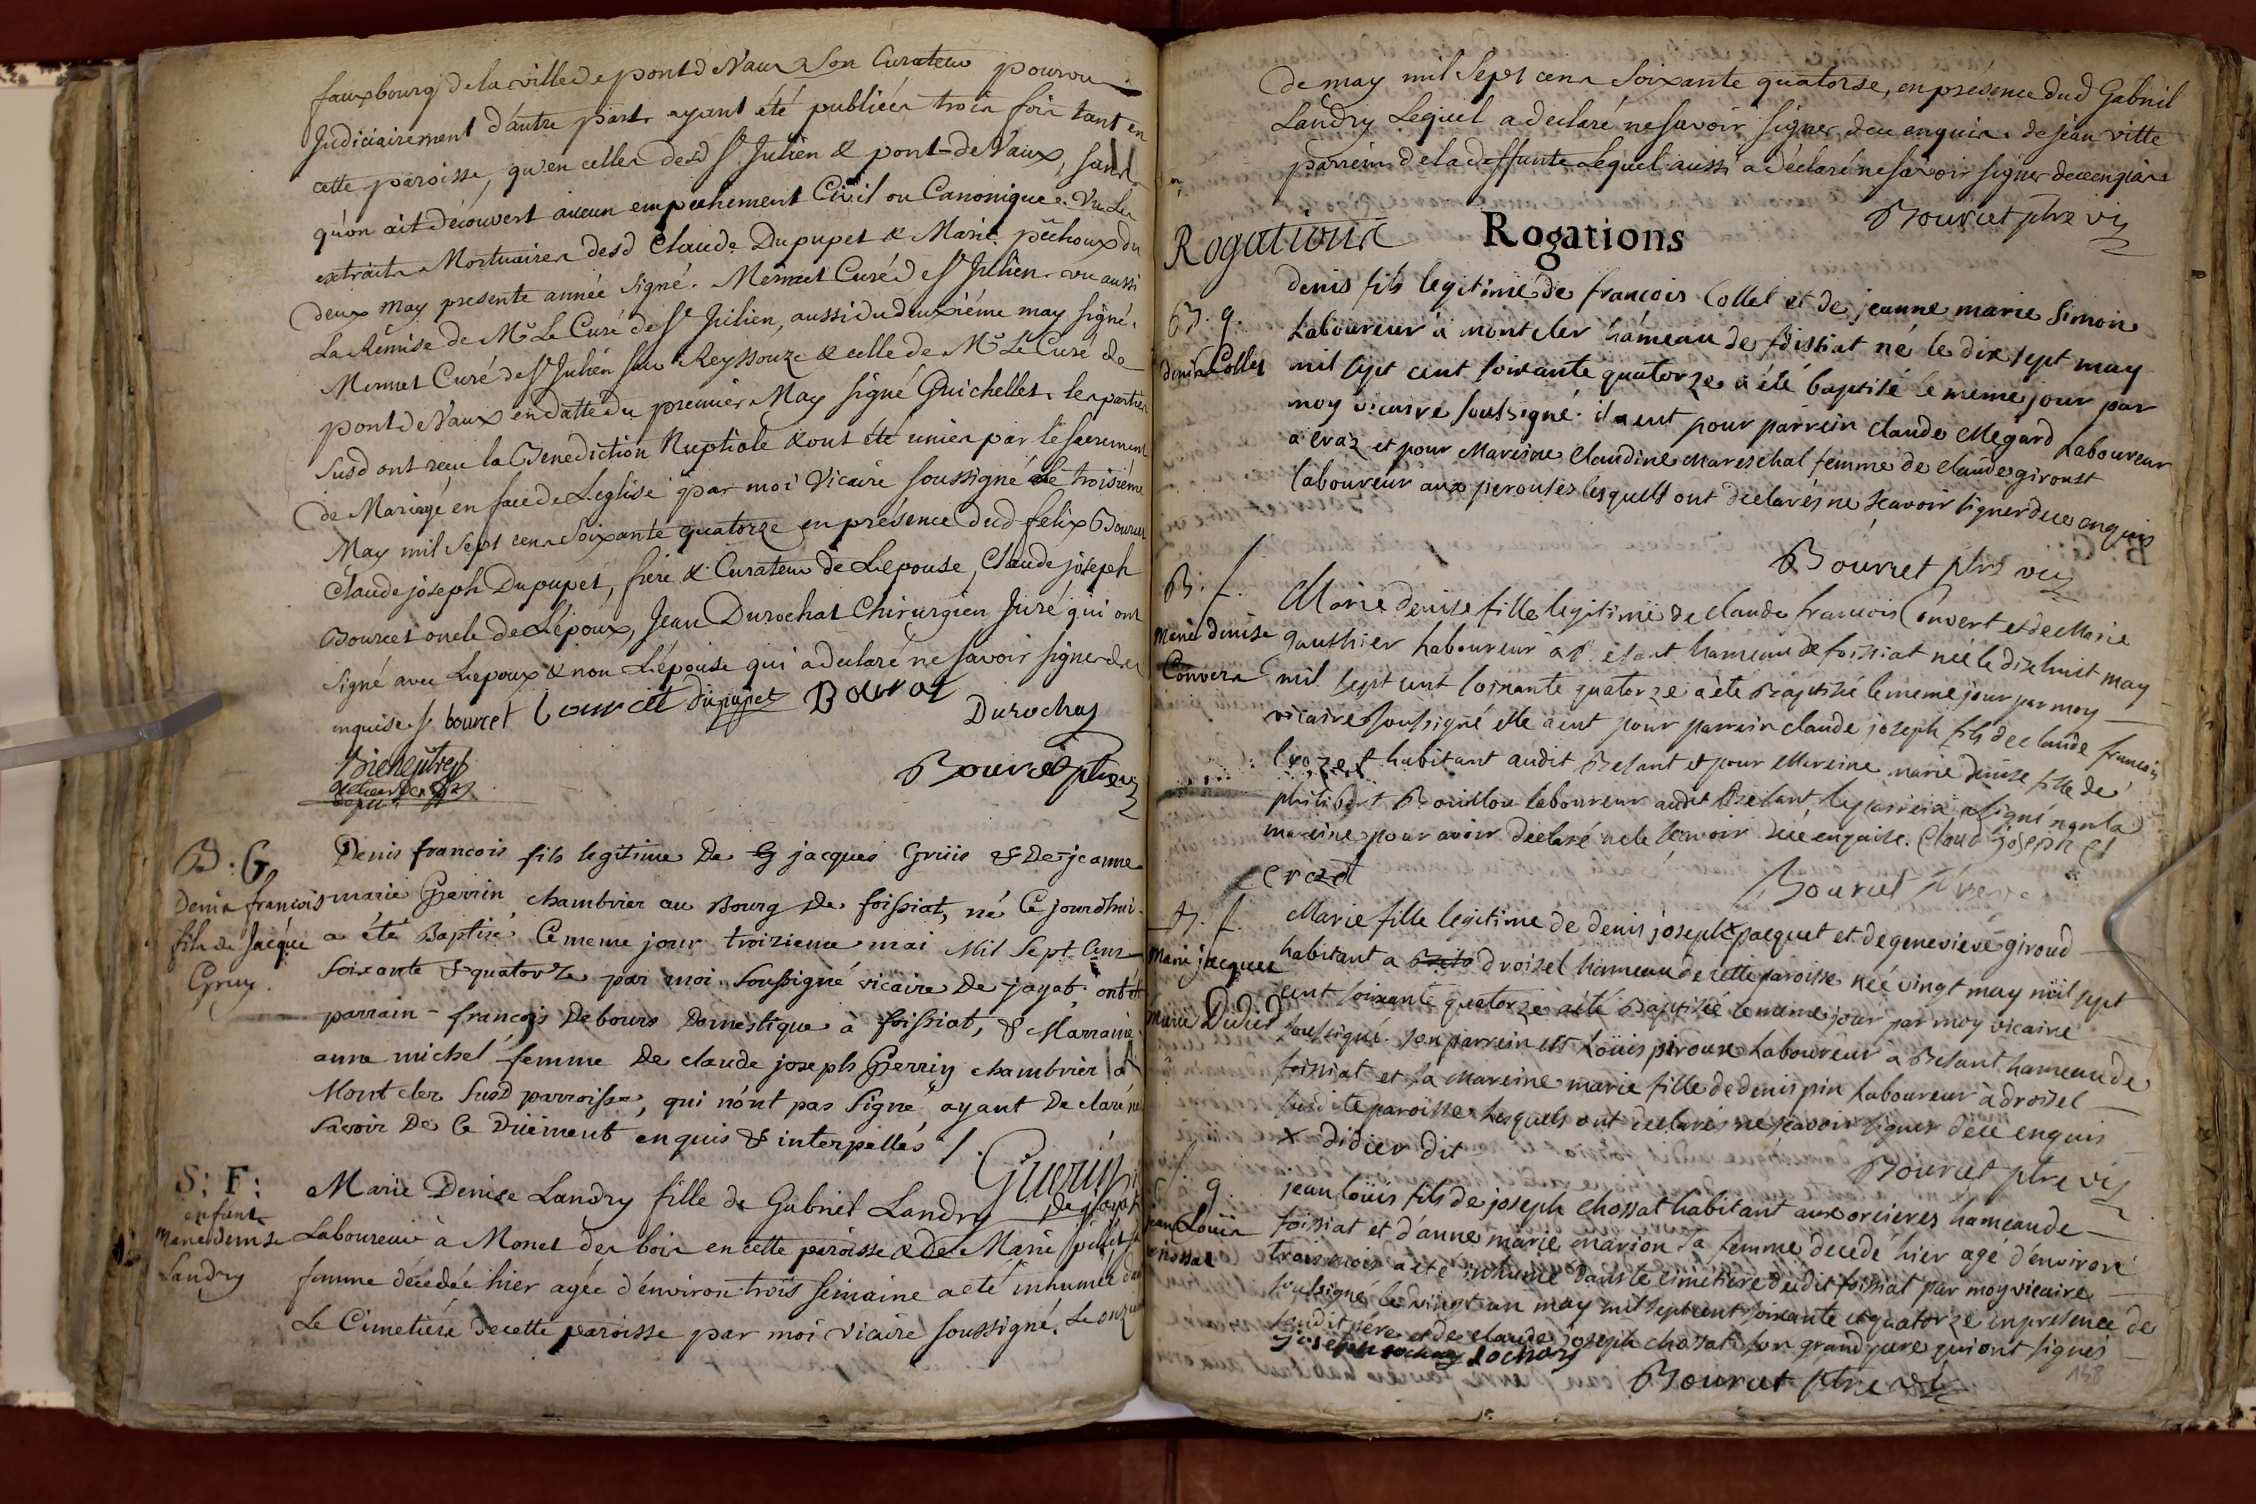 fauxbourg de la ville de pont de Vaux Son Curateur pourvu
Judiciairement d'autre part. ayant été publiéés trois fois tant en
cette paroisse, qu'en celles desd St Julien & pont-de Vaux, sans
qu'on ait découvert aucun empechement Civil ou Canonique. Vu les
extraits Mortuaires desd Claude Dupupet & Marie pêchoux du
deux may presente année signé. Mermet Curé de St Julien. vu aussi
La Remise de Mr Le Curé de St Julien, aussi du deuxiéme may signé.
Mermet Curé de St Julien sur Reyssouze & celle de Mr Le Curé de
pont de Vaux en datte du premier May signé Guichellet. les parties
susd ont reçu la Benediction Nuptiale & ont été unies par le sacrement
de Mariage en face de Leglise par moi Vicaire soussigné le troisième
May mil sept cens soixante quatorze en présence dud felix Bourcet
Claude joseph Dupupet, frere & Curateur de Lepouse, Claude joseph
Bourcet oncle de Lépoux, Jean Durochat Chirurgien Juré qui ont
signé avec Lepoux & non Lépouse qui a declaré ne savoir signer de
enquise f. bourcet Bourcet dupupet Bourcet
Durochas
Bourcet ptre vic
B: G.
Denis françois
fils de Jacque
Gruy.
Denis francois fils legitime De jacques Grüis & De jeanne
marie Perrin chambrier au Bourg de foissiat, né Ce jourdhui
a été Baptisé Ce meme jour troizieme mai Mil Sept Cens
Soixante & quatorze par moi Soussigné vicaire De jayat. ont été
parrain - françois Debours Domestique à foissiat, & Marraine
anne michel femme De claude joseph Perrin chambrier à
Mont cler Susd parroisse, qui n'ont pas Signé ayant Declaré ne
Savoir De Ce Düement enquis & interpellés /.
Guerin
De jayat
S: F:
enfant
Marie denise
Landry
Marie Denise Landry fille de Gabriel Landry
Laboureur à Monet des bois en cette paroisse & de Marie pillet sa
femme décédée hier agée d'environ trois semaine a eté inhumée dans
Le Cimetiére de cette paroisse par moi Vicaire soussigné. Le onze
de may mil Sept cens Soixante quatorse, en présence dud Gabriel
Landry Lequel a declaré ne savoir signer de ce enquis. de jean vitte
parrein de la deffunte Lequel aussi a déclaré ne savoir signer de ce enquis
Bourcet ptre vic
Rogations Rogations
B. g.
denis Collet
denis fils legitime de francois Collet et de jeanne marie Simon
Laboureur à mont cler hámeau de foissiat né le dix sept may
mil sept cent soixante quatorze a été baptisé le meme jour par
moy vicaire soussigné. il a eut pour parrein claude Megard Laboureur
a craz et pour Mareine Claudine Mareschal femme de claude giroust
laboureur aux perouses lesquells ont declarés ne sçavoir signer de ce enquis
Bourcet ptre vic
B. f.
Marie denise
Convert
Marie denise fille legitime de claude francois Convert et de Marie
gauthier Laboureur à Besant hameau de foissiat née le dix huit may
mil sept cent soixante quatorze a été Baptisée le meme jour par moy
vicaire soussigné elle a eut pour parrein claude joseph fils de claude francois
Crozet habitant audit Besant et pour Mareine marie denise fille de
philibert Bouillou laboureur audit Besant le parrein a signé non la
mareine pour avoir declaré ne le scavoir de ce enquise. Claud joseph C
crozet
Bourcet ptre vic
B. f.
Marie jacquet
Marie Didier
Marie fille legitime de denis joseph x jacquet et de genevieve giroud
habitant a droisel hameau de cette paroisse née vingt may mil sept
cent soixante quatorze a été Baptisée le meme jour par moy vicaire
soussigné. son parrein est Loüis piroux Laboureur à Besant hameau de
foissiat et sa Mareine marie fille de denis pin Laboureur à droisel
susdite paroisse Lesquels ont declarés ne scavoir signer de ce enquis
x Didier dit
Bourcet ptre vic
S. g.
jean Loüis
chossat
jean loüis fils de joseph chossat habitant aux orcieres hameau de
foissiat et d'anne marie marion sa femme decedé hier agé d'environ
trois mois a été inhumé dans le cimétiere dudit foissiat par moy vicaire
soussigné le vingt un may mil sept cent soixante et quatorze en presence de
sondit pere et de claude joseph chossat son grand pere qui ont signés
joseph
Bourcet ptre vic
148